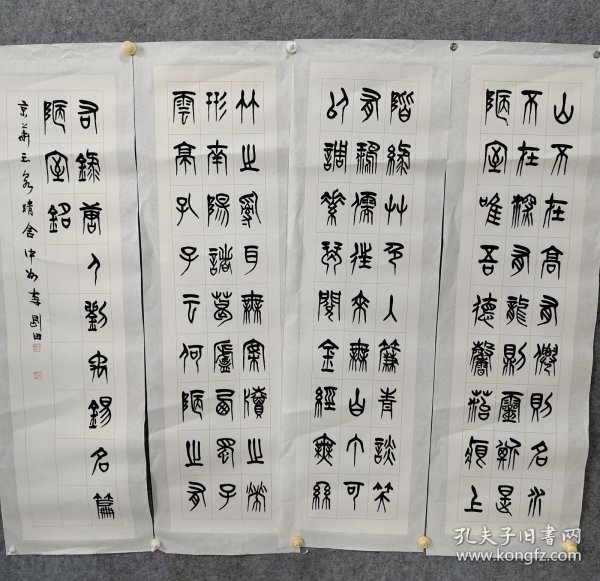 山不在高有僊則名水
不在深有龍則靈斯是
陋室唯吾德馨苔痕上
階綠艸色入簾青談笑
有鴻儒往來無白丁可
以調素琴閱金經無絲
竹之亂耳無案牘之勞
形南陽諸葛廬西蜀子
雲亭孔子云何陋之有
右錄唐人劉禹錫名篇
陋室銘
京華玉泉精舍中州李剛田
孔夫子旧书网
www.kongfz.com